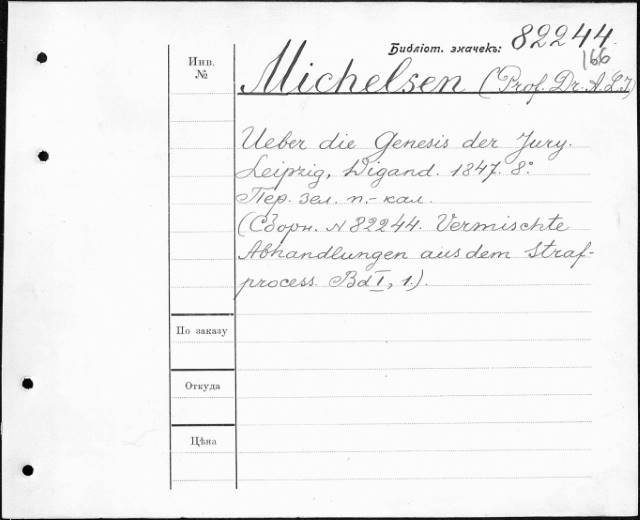 Библіот. значекъ: 82244.
166
Инв.
№
Michelsen (Prof. Dr. A. L. J)
Ueber die Genesis der Jury.
Leipzig, Wigand. 1847. 8°.
Пер. зел. п.-кал.
(Сборн. N 82244. Vermischte
Abhandlungen aus dem Straf-
process. Bd I, 1.).
По заказу
Откуда
Цѣна